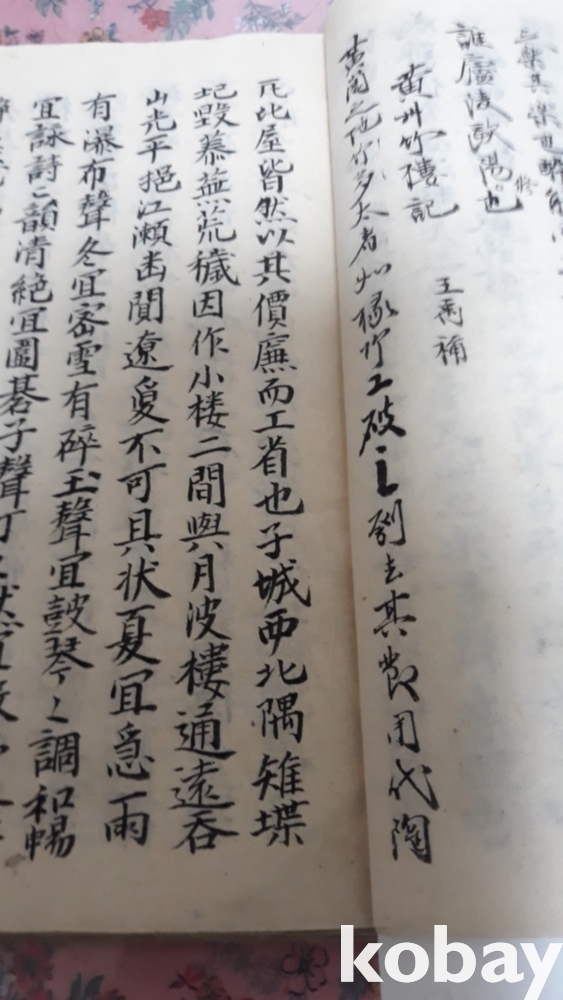 其樂也醉能
誰廬陵歐陽脩也
黄州竹樓記
王禹補
黄岡之地竹多大者如椽竹工破之刳去其節用代陶
瓦比屋皆然以其價廉而工省也子城西北隅雉堞
圮毀慕益荒穢因作小楼二間與月波樓通遠吞
山光平挹江瀬幽閴遼夐不可具状夏宜急雨
有瀑布聲冬宜密雪有碎玉聲宜皷琴〻調和暢
宜詠詩〻韻清絶宜圍碁子聲丁〻然宜投
kobay